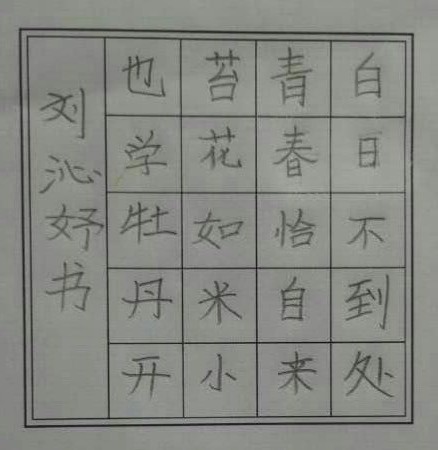 白日不到处
青春恰自来
苔花如米小
也学牡丹开
刘沁妤书